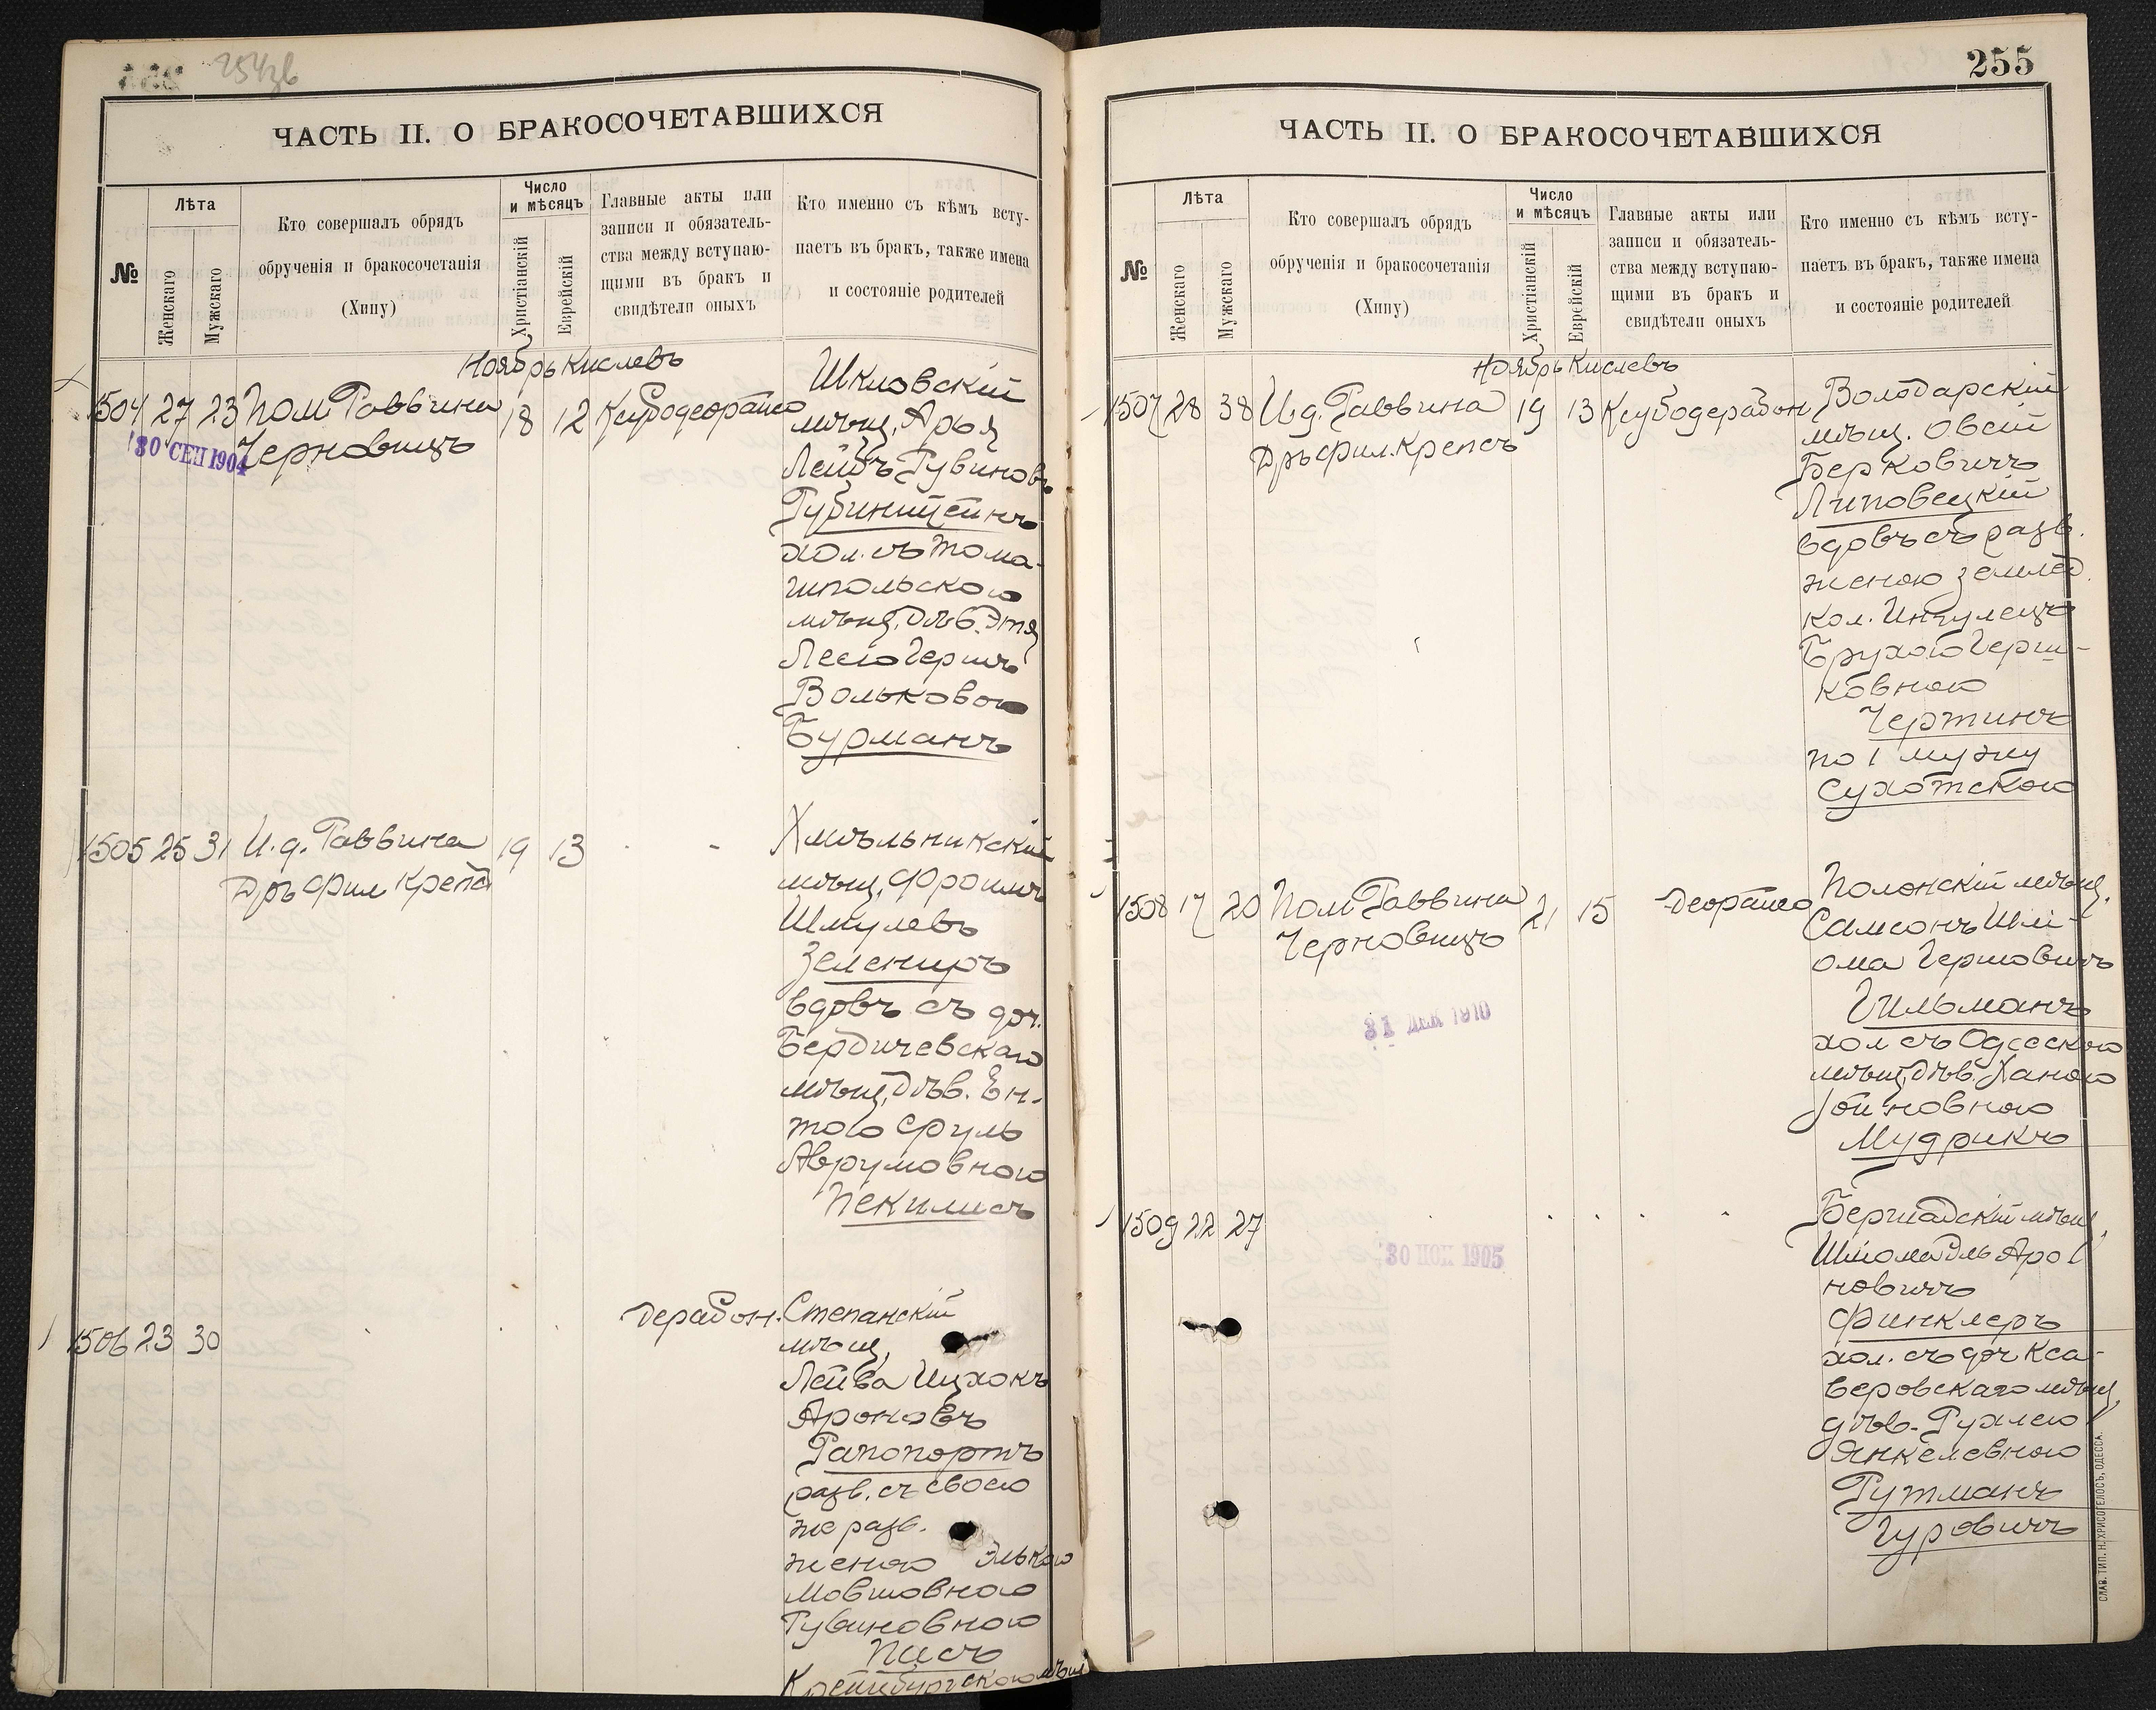 254об
ЧАСТЬ II. О БРАКОСОЧЕТАВШИХСЯ
№
Лѣта
Женскаго
Мужскаго
Кто совершалъ обрядъ
обрученія и бракосочетанія
(Хипу)
Число
и мѣсяцъ
Христіанскій
Еврейскій
Главные акты или
записи и обязатель-
ства между вступаю-
щими въ бракъ и
свидѣтели оныхъ
Кто именно съ кѣмъ всту-
паетъ въ бракъ, также имена
и состояніе родителей
Ноябрь Кислевъ
1504 27 23 Пом Раввина 18 12
Черновицъ
30 СЕП 1904
Шкловскій
мѣщ. Арья
Лейбъ Рувиновъ
Рубинштейнъ
хол. съ Тома-
шпольскою
мѣщ. дѣв. Этя
Лесю Гершъ
Вольковою
Бурманъ
1505 25 31 И. д. Раввина 19 13
Дръ Фил Крепсъ
Хмѣльникскій
мѣщ. Фроимъ
Шмулевъ
Зелениръ
вдовъ съ доч.
Бердичевскаго
мѣщ. дѣв. Ен-
тою Сруль
Аврумовною
Пекилисъ
1506 23 30
Дерабон.
Степанскій
мѣщ.
Лейва Ицхокъ
Ароновъ
Рапопортъ
разв. съ своею
же разв.
женою Элькою
Мовшовною
Рувиновною
Писъ
Крейцбургскою мѣщ
255
ЧАСТЬ II. О БРАКОСОЧЕТАВШИХСЯ
№
Лѣта
Женскаго
Мужскаго
Кто совершалъ обрядъ
обрученія и бракосочетанія
(Хипу)
Число
и мѣсяцъ
Христіанскій
Еврейскій
Главные акты или
записи и обязатель-
ства между вступаю-
щими въ бракъ и
свидѣтели оныхъ
Кто именно съ кѣмъ всту-
паетъ въ бракъ, также имена
и состояніе родителей
Ноябрь Кислевъ
1507 28 38 И. д. Раввина 19 13 Ксубодерабон
Дръ Фил. Крепсъ
Володарскій
мѣщ. Овсій
Берковичъ
Липовецкій
вдовъ съ разв.
женою землед.
кол. Ингулецъ
Брухою Герш-
ковною
Чертинъ
по 1 мужу
Сухотскою
1508 17 20 Пом Раввина 21 15
Черновицъ
31 ДЕК 1910
Полонскій мѣщ.
Самсонъ Шлі-
ома Гершовичъ
Гильманъ
хол съ Одесскою
мѣщ. дѣв. Ханою
Мудрикъ
1509 22 27
30 НОЯ 1905
Бершадскій мѣщ.
Новичъ
Финклеръ
хол. съ доч Кса-
веровскаго мѣщ.
дѣв. Рухлею
Янкелевною
Гутманъ
Гуровичъ
СЛАВ. ТИП. Н. ХРИСОГЕЛОСЪ, ОДЕССА.